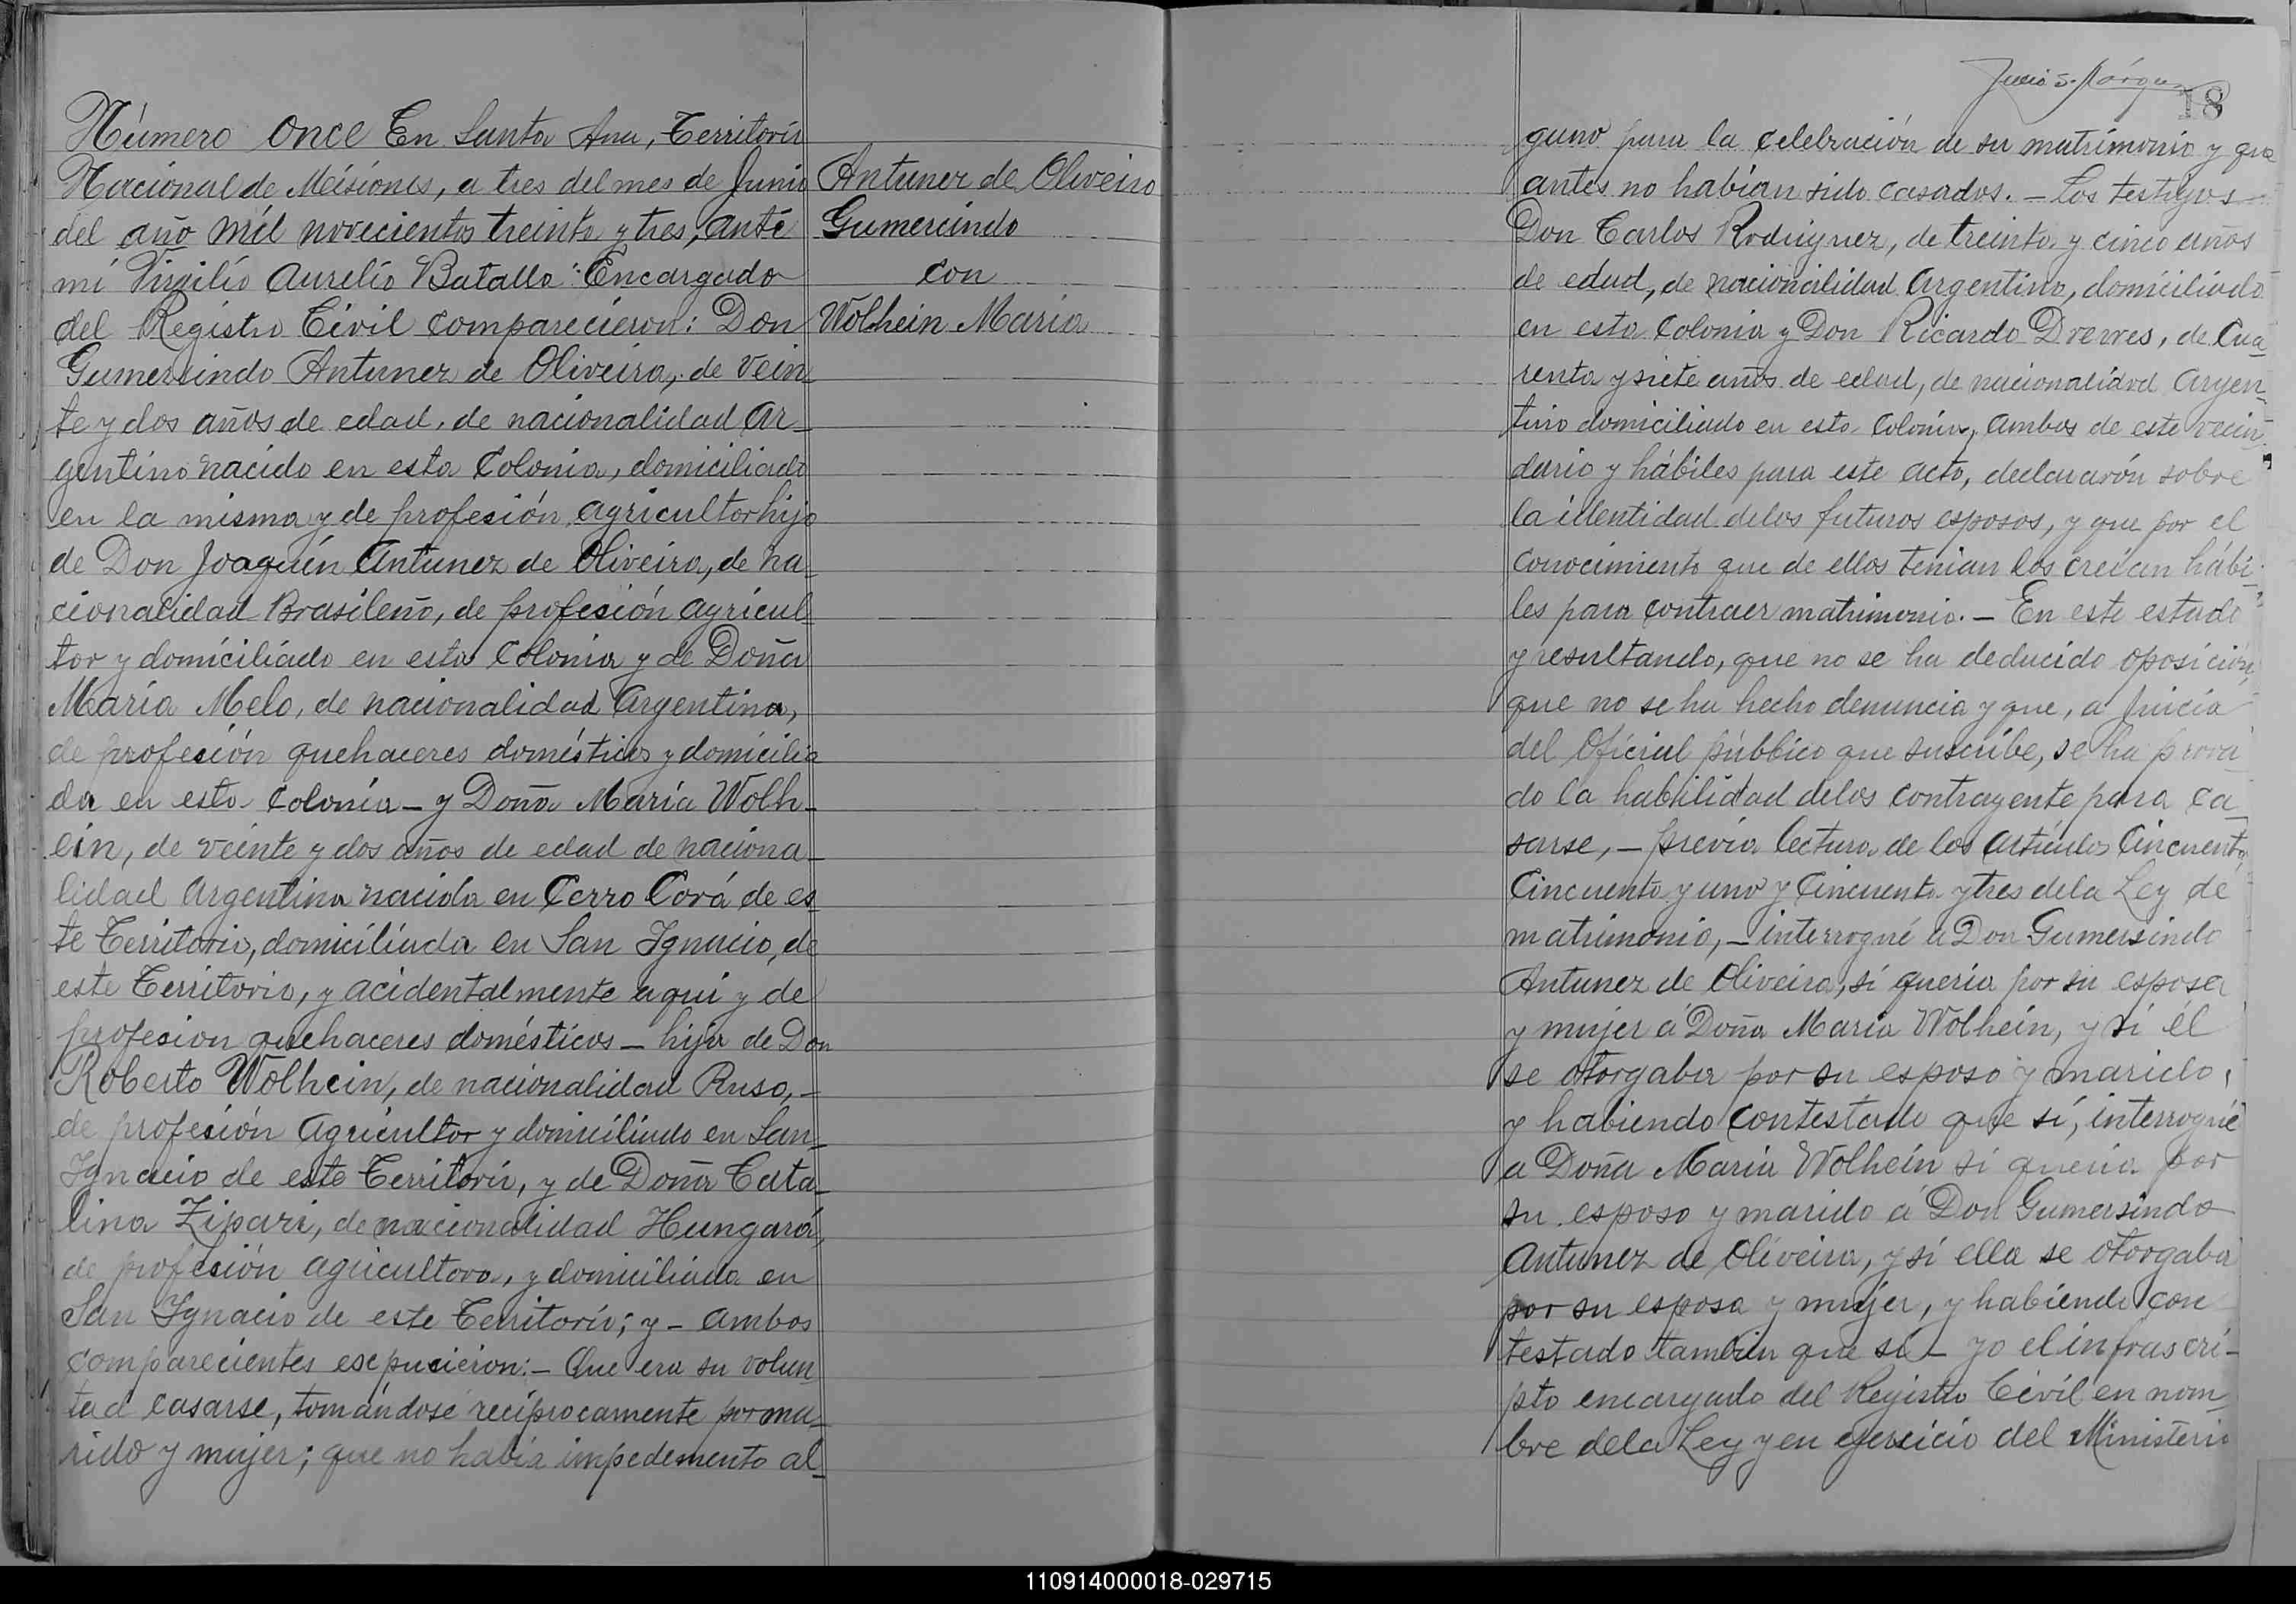 Número once En Santa Ana, Territorio
Nacional de Misiones, a tres del mes de Junio
del año mil novecientos treinta y tres, ante
mí Virgilio Aurelio Batalla: Encargado
del Registro Civil comparecieron: Don
Gumersindo Antunez de Oliveira, de vein_
te y dos años de edad, de nacionalidad Ar_
gentino nacido en esta Colonia, domiciliado
en la misma y de profesión agricultor hijo
de Don Joaquín Antunez de Oliveira, de na_
cionalidad Brasileño, de profesión agricul_
tor y domiciliado en esta Colonia y de Doña
María Melo, de nacionalidad Argentina,
de profesión quehaceres domésticos y domicilia
da en esta Colonia _ y Doña María Wolh_
ein, de veinte y dos años de edad de naciona_
lidad Argentina nacida en Cerro Corá de es_
te Territorio, domiciliada en San Ignacio, de
este Territorio, y acidentalmente aquí y de
profesion quehaceres domésticos _ hija de Don
Roberto Wolhein, de nacionalidad Ruso, _
de profesión Agricultor y domiciliado en San_
Ignacio de este Territorio, y de Doña Cata_
lina Zipari, de nacionalidad Hungará,
de profesión agricultora, y domiciliada en
San Ignacio de este Territorio; y _ ambos
comparecientes escpucieron: _ Que era su volun_
tad casarse, tomándose recíprocamente por ma_
rido y mujer; que no había impedemento al_
Antunez de Oliveira
Gumercindo
con
Wolhein Maria
18
guno para la celebración de su matrimonio y que
antes no habían sido casados. _ Los testigos
Don Carlos Rodriguez, de treinta y cinco años
de edad, de nacionalidad Argentino, domiciliado
en esta Colonia y Don Ricardo Drewes, de Cua_
renta y siete años de edad, de nacionalidad Argen_
tino domiciliado en esta Colonia, ambos de este vecin_
dario y hábiles para este acto, declararón sobre
la identidad de los futuros esposos, y que por el
conocimiento que de ellos tenian los creían hábi_
les para contraer matrimonio. _ En este estado
y resultando, que no se ha deducido oposición,
que no se ha hecho denuncia y que, a Juicio
del Oficial público que suscribe, se ha prova_
do la habilidad de los contrayente para ca_
sarse, _ previa lectura de los artículos Cincuenta
Cincuenta y uno y Cincuenta y tres de la Ley de
matrimonio, _ interrogué a Don Gumersindo
Antunez de Oliveira, si queria por su esposa
y mujer a Doña Maria Wolhein, y si él
se otorgaba por su esposo y marido,
y habiendo contestado que sí, interrogué
a Doña Maria Wolhein si queria por
su esposo y marido a Don Gumersindo
Antunez de Oliveira, y si ella se otorgaba
por su esposa y mujer, y habiendo con
testado tambien que sí _ yo el infrascri_
pto encargado del Registro Civil en nom_
bre de la Ley y en ejercicio del Ministerio
110914000018-029715